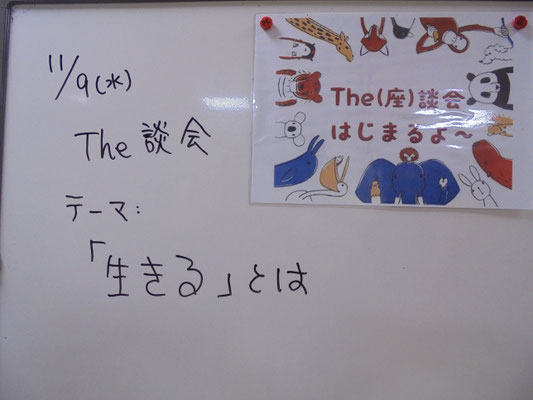 11/9(水)
The 談会
テーマ:
「生きる」とは
The(座)談会
はじまるよ～